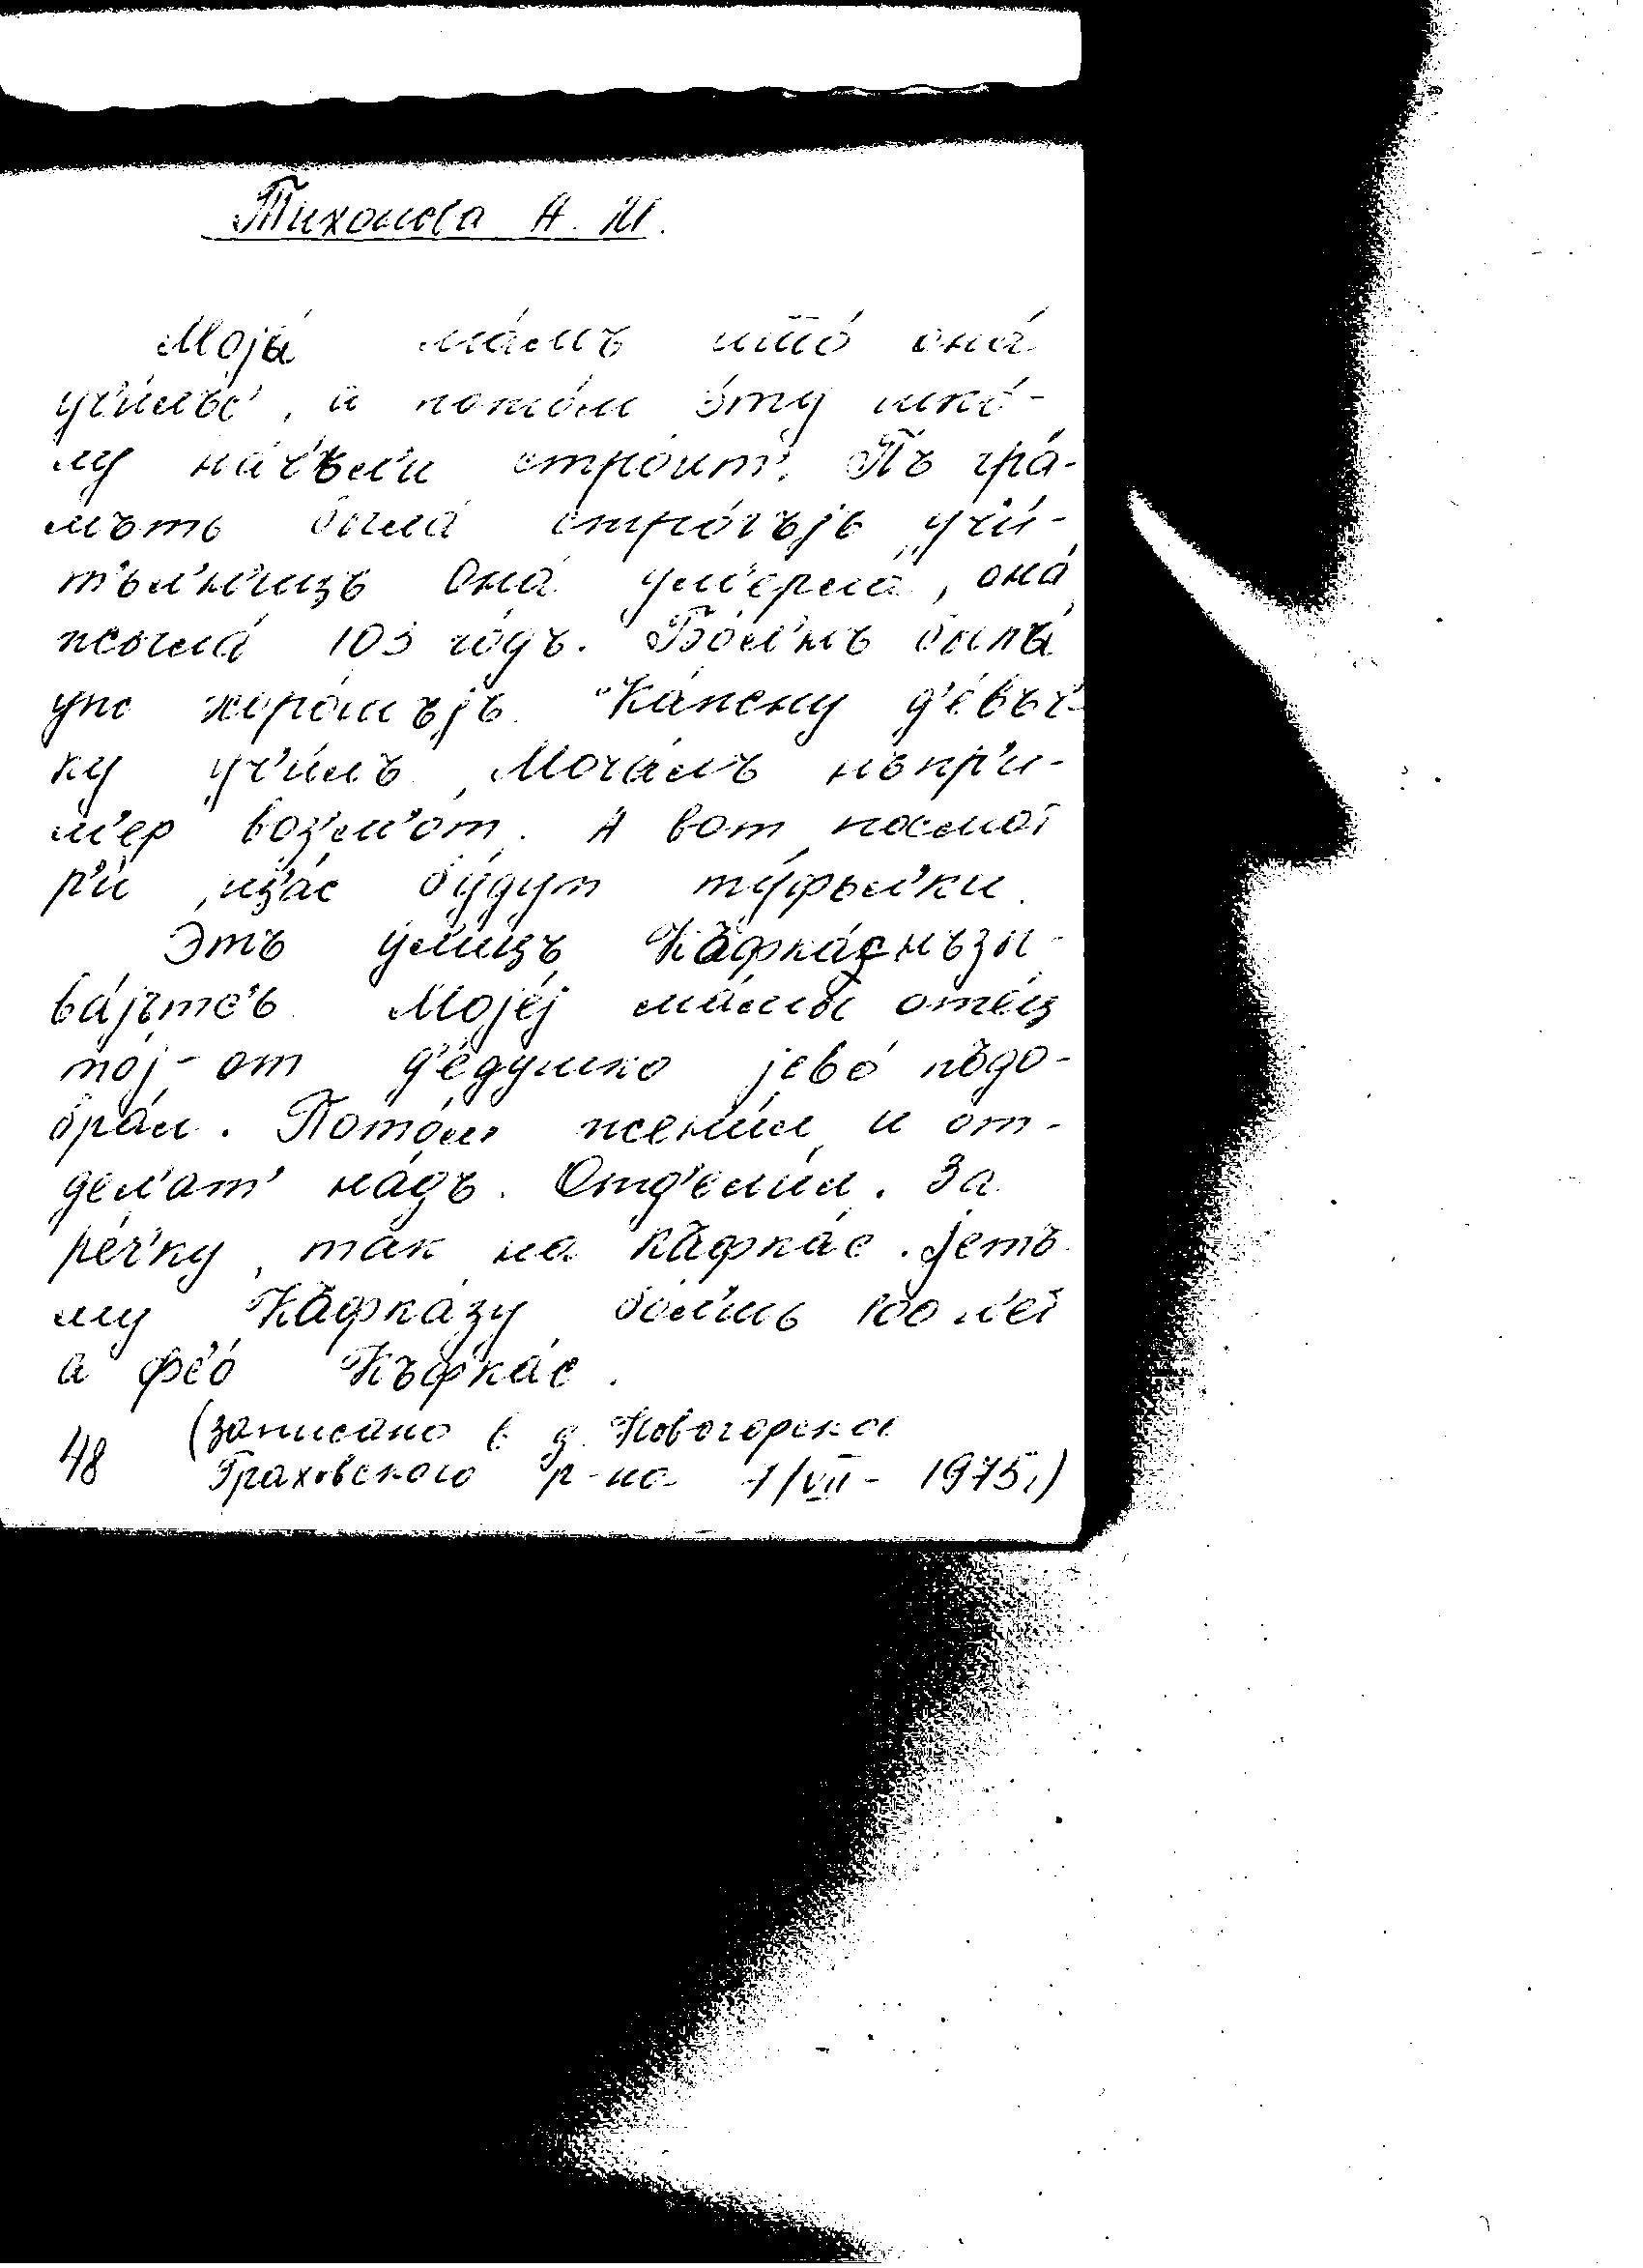 Тихонова А. И.
Моја́ ма́мъ што́ она́
уч'и́лъс', и пото́м э́ту шко́-
лу на́ч'ъл'и стро́ит'. Пъ гра́-
мътъ была́ стро́гъјь уч'и́-
т'ьл'н'ицъ Она́ ум'ерла́, она́
жыла́ 103 го́дъ. Бо́л'нъ была́
уж хоро́шъјъ. Ка́жну д'е́въч'-
ку уч'и́лъ. Моча́лъ нъпр'и-
м'ер воз'м'о́т. А вот посмот
р'и́, щ'ас бу́дут ту́фыл'ки.
Этъ у́л'ицъ Кафка́с нъзы-
ва́јътс'ь. Моје́ј ма́мы оте́ц
тој-от д'е́душко јево́ подо-
бра́л. Пото́м жени́л и от-
дел'а́т' на́дъ. Отд'ели́л. За
ре́ч'ку, так на Кафка́с. Јетъ
му Кафка́зу бо́л'шь 100 л'ет
а фс'о́ Къфка́с.
48 (записано в д. Новогорское
Граховского р-на 1/VII - 1975г.)